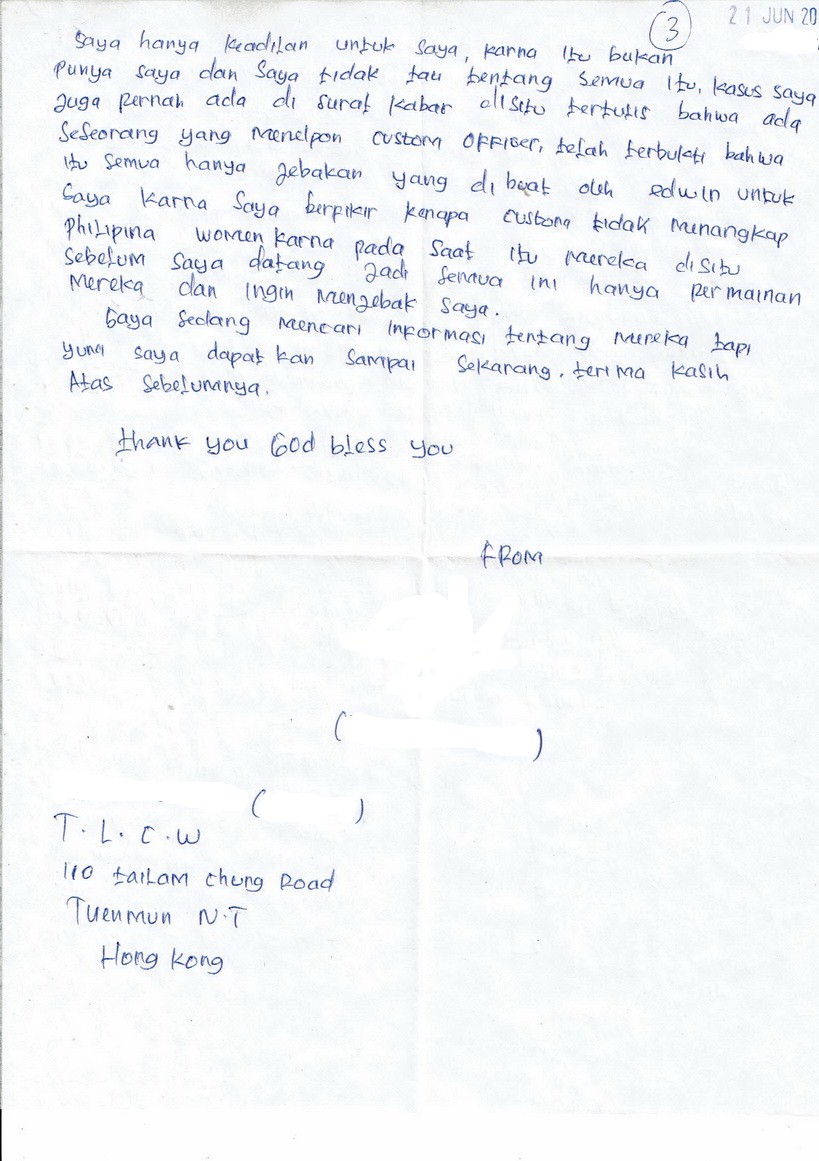 21 JUN 20
3
Saya hanya keadilan untuk saya, karna itu bukan
Punya saya dan Saya tidak tau tentang semua itu, kasus saya
Juga pernah ada di surat kabar disitu tertulis bahwa ada
Seseorang yang menelpon custom officer, telah terbukti bahwa
itu semua hanya jebakan yang di buat oleh edwin untuk
Saya karna Saya berpikir kenapa custom tidak menangkap
Philipina women karna pada saat itu mereka disitu
Sebelum saya datang Jadi semua ini hanya permainan
Mereka dan ingin menjebak saya.
Saya sedang mencari informasi tentang mereka tapi
saya dapat kan sampai sekarang. terima kasih
Atas Sebelumnya.
thank you God bless you
FROM
( )
( )
T. L. C. W
110 tailam chung Road
Tuenmun N.T
Hong Kong